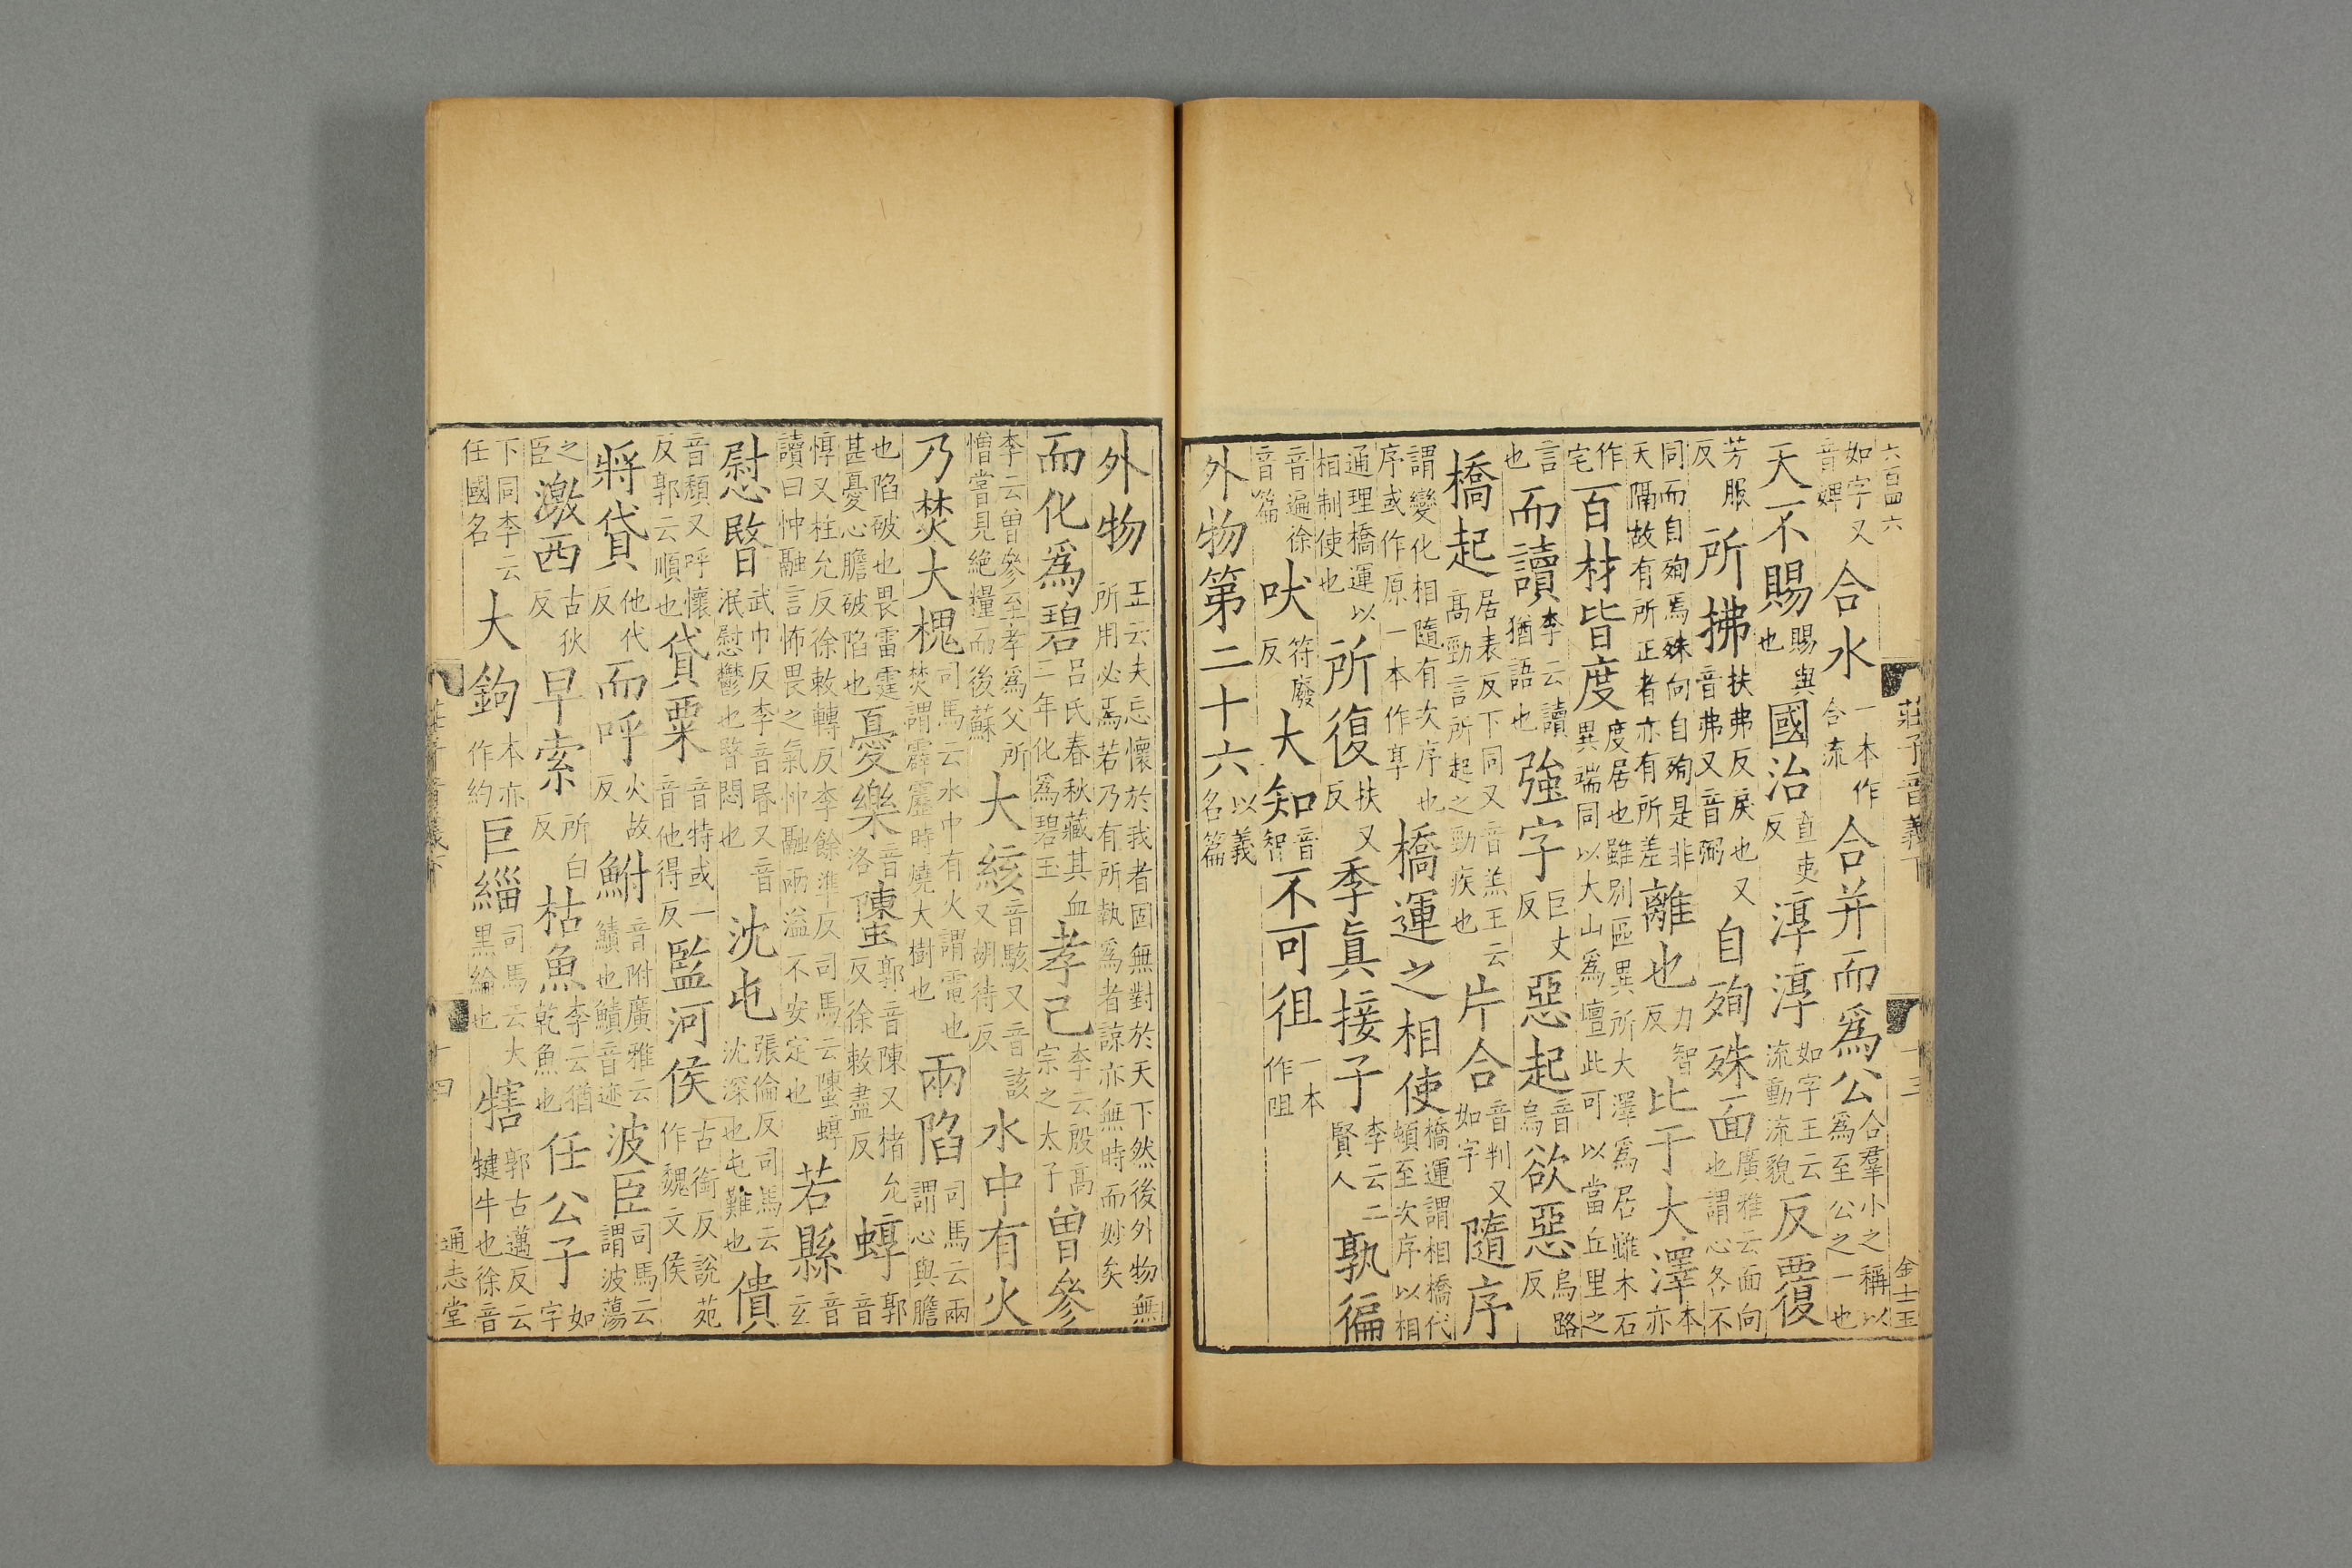 六百四六
莊子音義下
十三
金士玉
如字又音婢合水一本作合流合并而爲公合羣小之稱以爲至公之一也
天不賜賜與也國治直吏反淳淳如字王云流動流貌反覆
芳服反所拂扶弗反戾也又音弗又音弼自殉殊面廣雅云面向也謂心各不
同而自殉焉殊向自殉是非天隔故有所正者亦有所差離也力智反比于大澤本亦
作宅百材皆度度居也雖別區異所大澤爲居雖木石異端同以大山爲壇此可以當丘里之
言也而讀李云讀猶語也強字巨丈反惡起音烏欲惡烏路反
橋起居表反下同又音羔王云高勁言所起之勁疾也片合音判又如字隨序
謂變化相隨有次序也序或作原一本作享橋運之相使橋運謂相橋代頓至次序以相
通理橋運以相制使也所復扶又反季眞接子李云二賢人孰徧
音遍徐音篇吠符廢反大知音智不可徂一本作阻
外物第二十六以義名篇
外物王云夫忘懷於我者固無對於天下然後外物無所用必焉若乃有所執爲者諒亦無時而妙矣
而化爲碧呂氏春秋藏其血三年化爲碧玉孝己李云殷高宗之太子曾參
李云曾參至孝爲父所憎嘗見絶糧而後蘇大絯音駭又音該又胡待反水中有火
乃焚大槐司馬云水中有火謂電也焚謂霹靂時燒大樹也兩陷司馬云兩謂心與膽
也陷破也畏雷霆甚憂心膽破陷也憂樂音洛䗞郭音陳又楮允反徐敕盡反蜳郭音
惇又柱允反徐敕轉反李餘準反司馬云䗞蜳讀曰忡融言怖畏之氣忡融兩溢不安定也若縣音玄
慰暋武巾反李音昬又音泯慰鬱也暋悶也沈屯張倫反司馬云沈深也屯難也僓
音頹又呼懷反郭云順也貸粟音特或一音他得反監河侯古銜反說苑作魏文侯
將貸他代反而呼火故反鮒音附廣雅云鰿也鰿音迹波臣司馬云謂波蕩
之臣激西古狄反早索所白反枯魚李云猶乾魚也任公子如字
下同李云任國名大鉤本亦作約巨緇司馬云大黑綸也犗郭古邁反云犍牛也徐音
莊子音義下
十四
通志堂